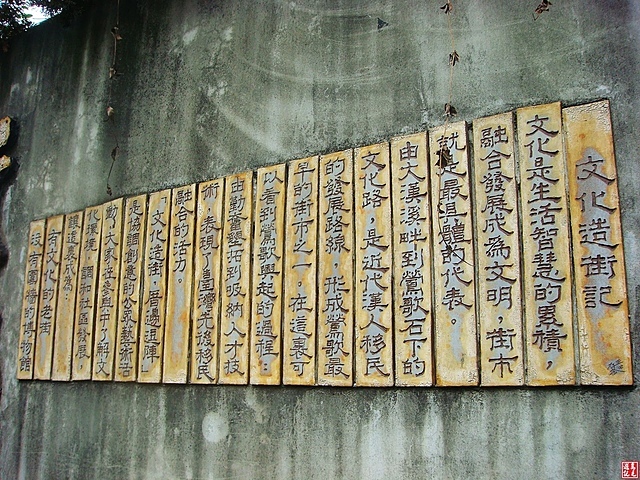 文化造街記
文化是生活智慧的累積，
融合發展成為文明，街市
就是最具體的代表。
由大漢溪畔到鶯歌石下的
文化路，是近代漢人移民
的發展路線，形成鶯歌最
早的街市之一，在這裏可
以看到鶯歌興起的過程：
由勤奮墾拓到吸納人才技
術，表現了臺灣尤諸移民
融合的活力。
「文化造街，厝邊逗陣」
是協調創意的公共藝術活
動，大家在參與中了解文
化環境，調和社區發展，
讓這裏成為：
有文化的老街
沒有圍牆的博物館